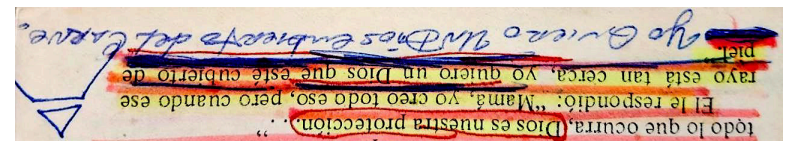 todo lo que ocurra, Dios es nuestra protección. . .”
El le respondió: “Mamá, yo creo todo eso, pero cuando ese
rayo está tan cerca, yo quiero un Dios que esté cubierto de
piel”
Yo Quiero Un Dios cubierto del Carne,